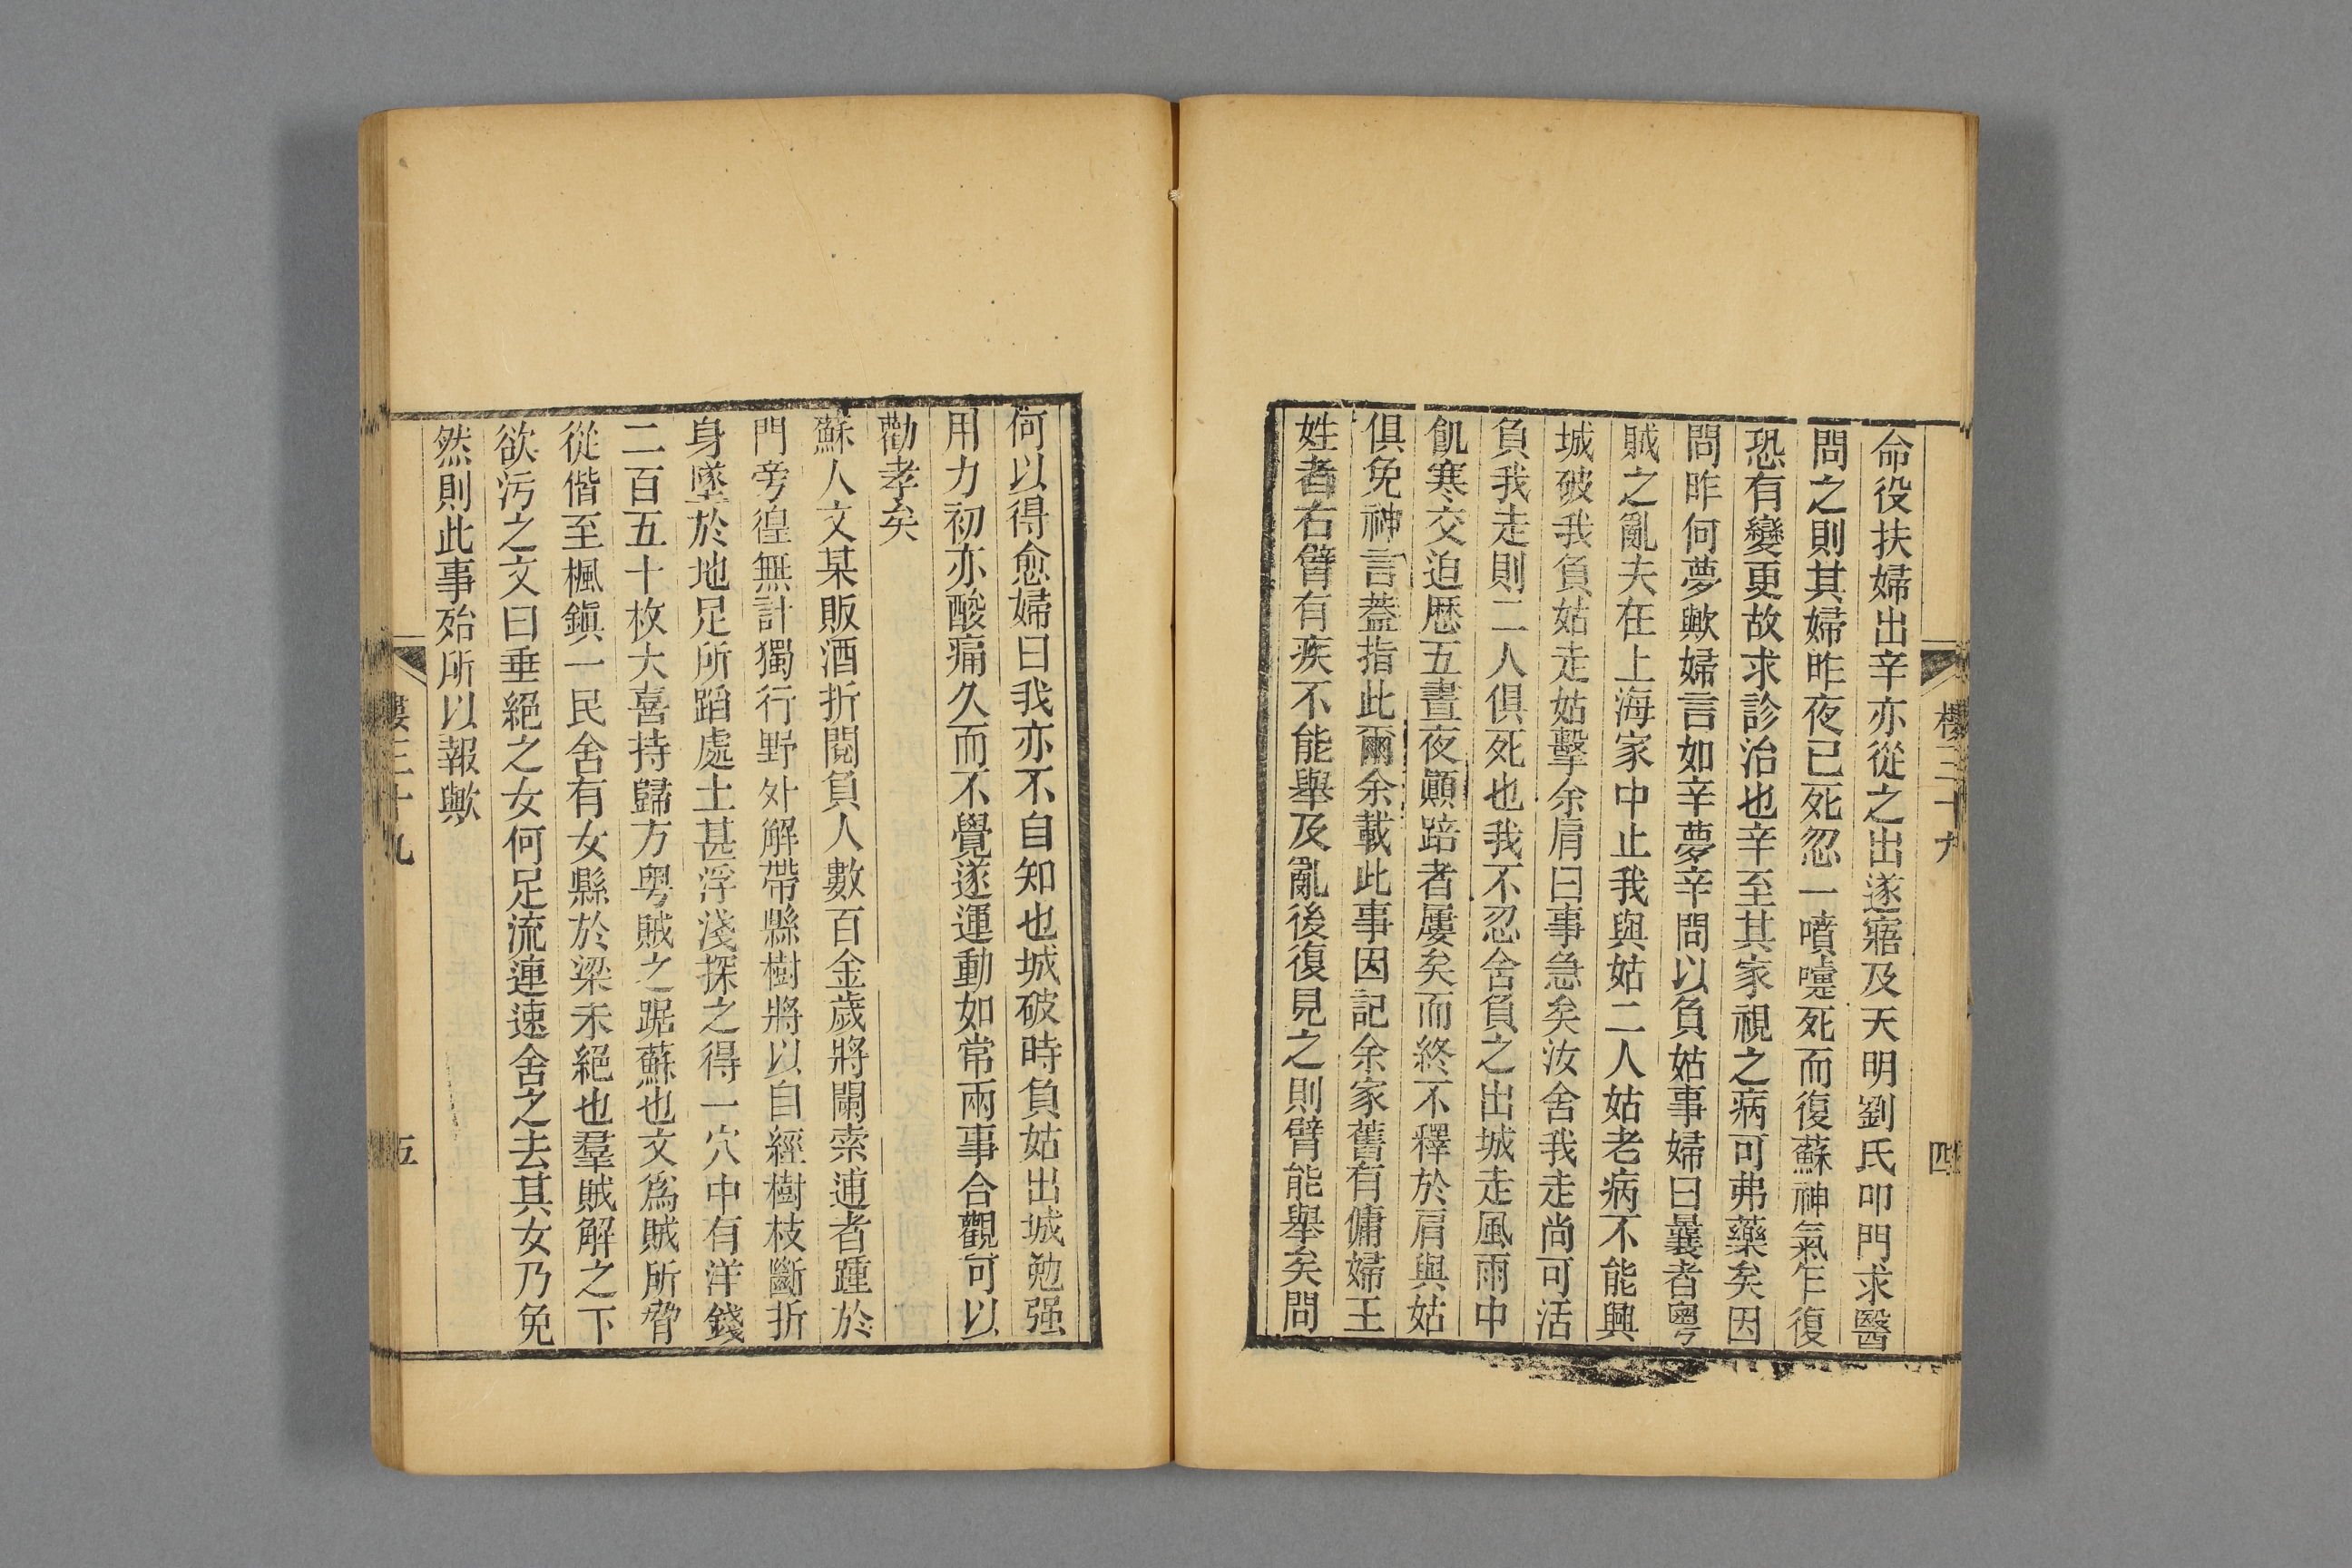 命役扶婦出辛亦從之出遂寤及天明劉氏叩門求醫
問之則其婦昨夜已死忽一噴嚏死而復蘇神氣乍復
恐有變更故求診治也辛至其家視之病可弗藥矣因
問昨何夢歟婦言如辛夢辛問以負姑事婦曰曩者粵
賊之亂夫在上海家中止我與姑二人姑老病不能興
城破我負姑走姑擊余肩曰事急矣汝舍我走尚可活
負我走則二人俱死也我不忍舍負之出城走風雨中
飢寒交迫歷五晝夜顚踣者屢矣而終不釋於肩與姑
俱免神言蓋指此爾余載此事因記余家舊有傭婦王
姓者右臂有疾不能舉及亂後復見之則臂能舉矣問
樓三十九
四
何以得愈婦曰我亦不自知也城破時負姑出城勉强
用力初亦酸痛久而不覺遂運動如常兩事合觀可以
勸孝矣
蘇人文某販酒折閱負人數百金歲將闌索逋者踵於
門旁徨無計獨行野外解帶縣樹將以自經樹枝斷折
身墜於地足所蹈處土甚浮淺探之得一穴中有洋錢
二百五十枚大喜持歸方粵賊之踞蘇也文爲賊所脅
從偕至楓鎭一民舍有女縣於梁未絕也羣賊解之下
欲污之文曰垂絕之女何足流連速舍之去其女乃免
然則此事殆所以報歟
樓三十九
五